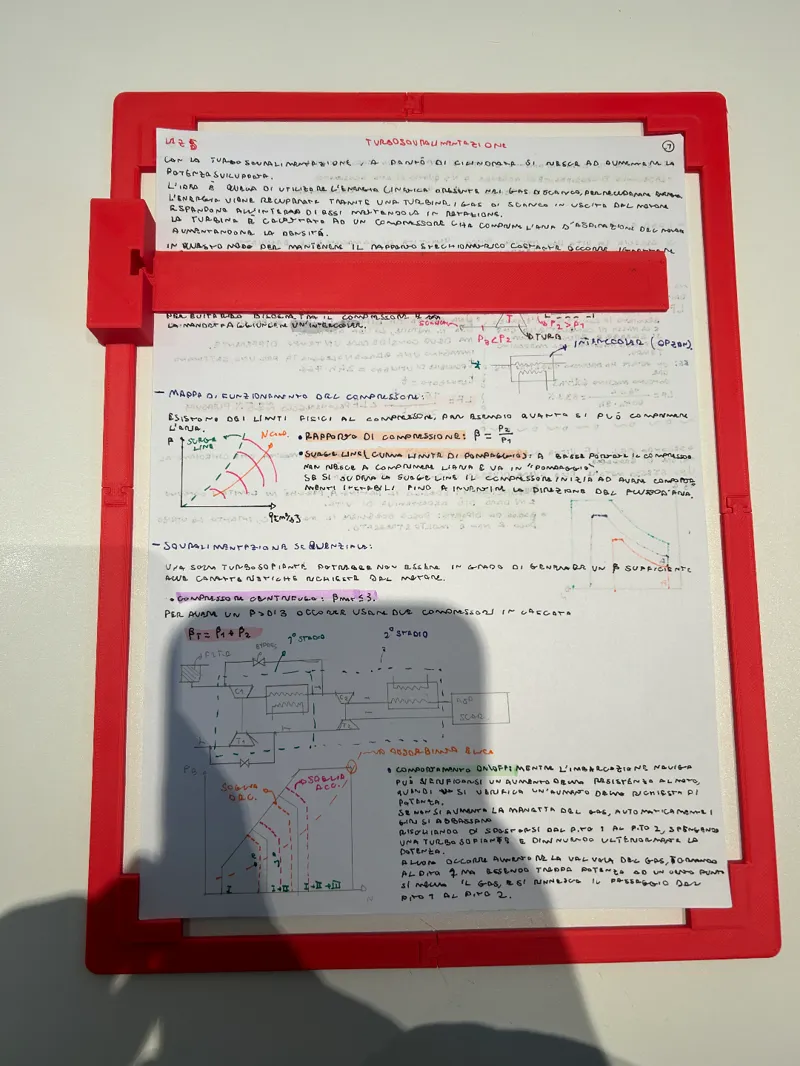 LEZ 5
TURBOSOVRALIMENTAZIONE
7
CON LA TURBOSOVRALIMENTAZIONE, A PARITÀ DI CILINDRATA SI RIESCE AD AUMENTARE LA
POTENZA SVILUPPATA.
L'IDEA È QUELLA DI UTILIZZARE L'ENERGIA CINETICA PRESENTE NEI GAS DI SCARICO, PER RECUPERARE ENERGIA
L'ENERGIA VIENE RECUPERATA TRAMITE UNA TURBINA, I GAS DI SCARICO IN USCITA DAL MOTORE
ESPANDONO ALL'INTERNO DI ESSA METTENDOLA IN ROTAZIONE.
LA TURBINA È CALETTATA AD UN COMPRESSORE CHE COMPRIME L'ARIA D'ASPIRAZIONE DEL MOTORE
AUMENTANDONE LA DENSITÀ.
IN QUESTO MODO PER MANTENERE IL RAPPORTO STECHIOMETRICO COSTANTE OCCORRE
PER EVITARLO BISOGNA TRA IL COMPRESSORE E
LA MANDATA AGGIUNGERE UN'INTERCOOLER.
T
P2>P1
P3<P2
TURB
INTERCOOLER (OPZ.)
- MAPPA DI FUNZIONAMENTO DEL COMPRESSORE:
ESISTONO DEI LIMITI FISICI AL COMPRESSORE, PER ESEMPIO QUANTO SI PUÒ COMPRIMERE
L'ARIA.
β
SURGE
LINE
N COMP.
• RAPPORTO DI COMPRESSIONE: β = P2/P1
• SURGE LINE (CURVA LIMITE DI POMPAGGIO): A BASSE PORTATE IL COMPRESSORE
NON RIESCE A COMPRIMERE L'ARIA E VA IN "POMPAGGIO".
SE SI SUPERA LA SURGE LINE IL COMPRESSORE INIZIA AD AVERE COMPORTA
MENTI INSTABILI FINO A INVERTIRE LA DIREZIONE DEL FLUSSO D'ARIA.
- SOVRALIMENTAZIONE SEQUENZIALE:
UNA SOLA TURBOSOFFIANTE POTREBBE NON ESSERE IN GRADO DI GENERARE UN β SUFFICIENTE
ALLE CARATTERISTICHE RICHIESTE DAL MOTORE.
• COMPRESSORE CENTRIFUGO: βMAX ≤ 3.
PER AVERE UN β>DI 3 OCCORRE USARE DUE COMPRESSORI IN CASCATA
βT = β1 + β2
1° STADIO
2° STADIO
FILTRO
BYPASS
C1
C2
T1
T2
SCAR.
VA ASSORBIMENTO ELICA
SOGLIA
DEC.
SOGLIA
ACC.
I
I+II
I+II+III
• COMPORTAMENTO ON/OFF: MENTRE L'IMBARCAZIONE NAVIGA
PUÒ VERIFICARSI UN AUMENTO DELLA RESISTENZA AL MOTO,
QUINDI SI VERIFICA UN'AUMENTO DELLA RICHIESTA DI
POTENZA.
SE NON SI AUMENTA LA MANETTA DEL GAS, AUTOMATICAMENTE I
GIRI SI ABBASSANO
RISCHIANDO DI SPOSTARSI DAL P.TO 1 AL P.TO 2, SPEGNENDO
UNA TURBOSOFFIANTE E DIMINUENDO ULTERIORMENTE LA
POTENZA.
ALLORA OCCORRE AUMENTARE LA VALVOLA DEL GAS, TORNANDO
AL P.TO 1, MA ESSENDO TROPPA POTENZA AD UN CERTO PUNTO
SI IL GAS, E SI RINNESCA IL PASSAGGIO DAL
P.TO 1 AL P.TO 2.